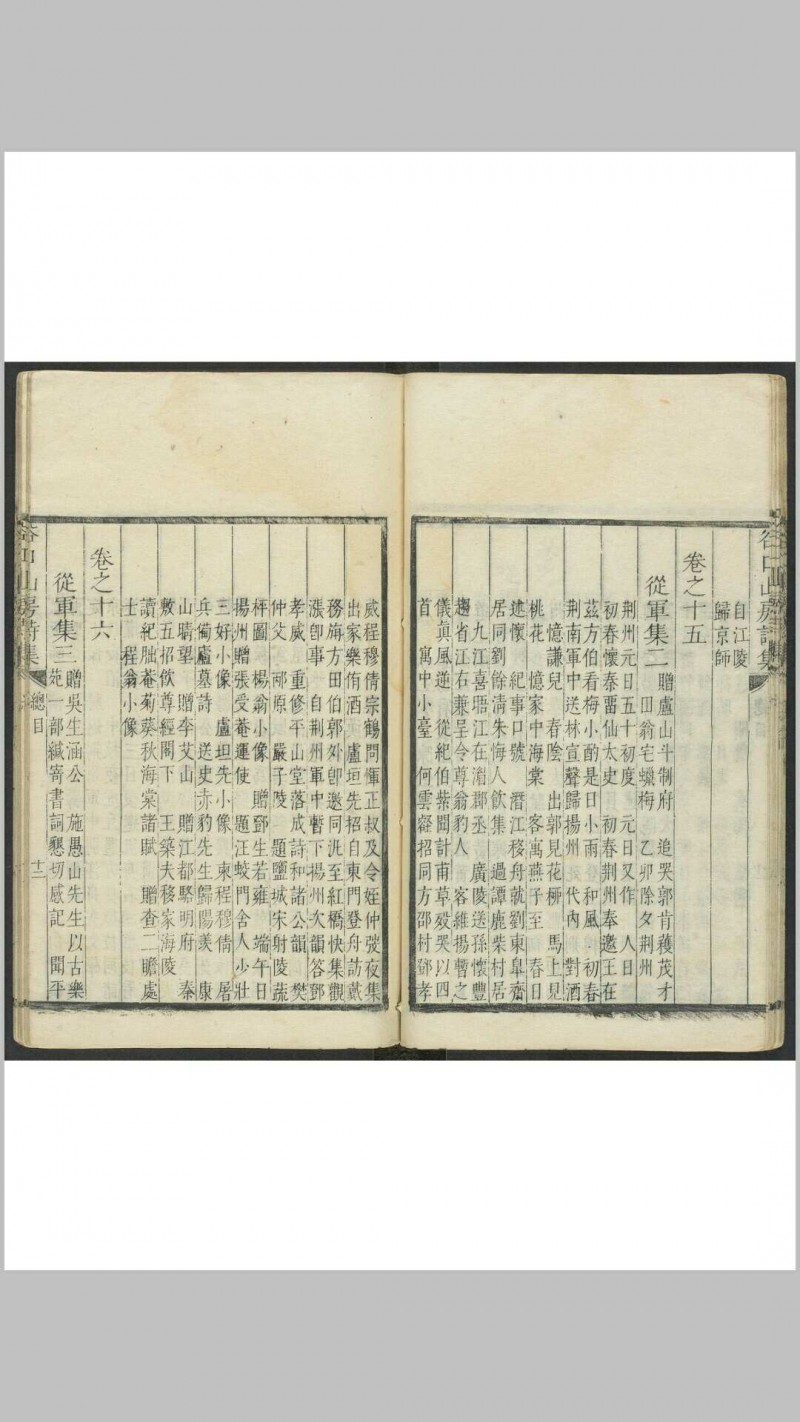 自江陵
歸京師
卷之十五
從軍集二
贈盧山斗制府　追哭郭肯穫茂才
田翁宅蠟梅　乙卯除夕荆州
荆州元日五十初度　元日又作　人日
初春懷泰嚳仙太史　初春荆州奉邀王在
茲方伯看梅小酌是日小雨　和風　初春
荆南軍中送林宣聲歸揚州　代內　對酒
憶謙兒　春陰　出郭見花栁　馬上見
桃花　憶家中海棠　客寓燕子至　春日
述懷　紀事口號　潛江移舟就劉東臯齋
居同劉餘淸朱悔人飲集　過譚鹿柴村居
九江喜晤江在湄郡丞　廣陵送孫懷豐
趨省江右兼呈令尊翁豹人　客維揚暫之
儀眞風逆　從紀伯紫聞計甫草歿哭以四
首　寓中小臺　何雲壑招同方邵村鄧孝
威程穆倩宗鶴問惲正叔及令姪仲弢夜集
出家樂侑酒　盧垣先招自東門登舟訪戴
務旃方田伯郭外卽邀同汎至紅橋快集觀
漲卽事　自荆州軍中暫下揚州次韻答鄧
孝威　重修平山堂落成詩和諸公韻　樊
仲父　邴原　嚴子陵　題鹽城宋射陵蔬
枰圖　楊翁小像　贈鄧生若雍　端午日
揚州贈張受菴運使　題汪蛟門舍人少壯
三好小像　盧坦先小像　柬程穆倩　屠
兵僃廬墓詩　送史赤豹先生歸陽羨　康
山晴望　贈李艾山　贈江都駱明府　秦
敷五招飲尊經閣下　王築夫移家海陵
讀紀朏菴菊葵秋海棠諸賦　贈查二瞻處
士　程翁小像
卷之十六
從軍集三
贈吳生涵公　施愚山先生以古樂
苑一部緘寄書詞懇切感記　聞平
谷口山房詩集
總目
十二